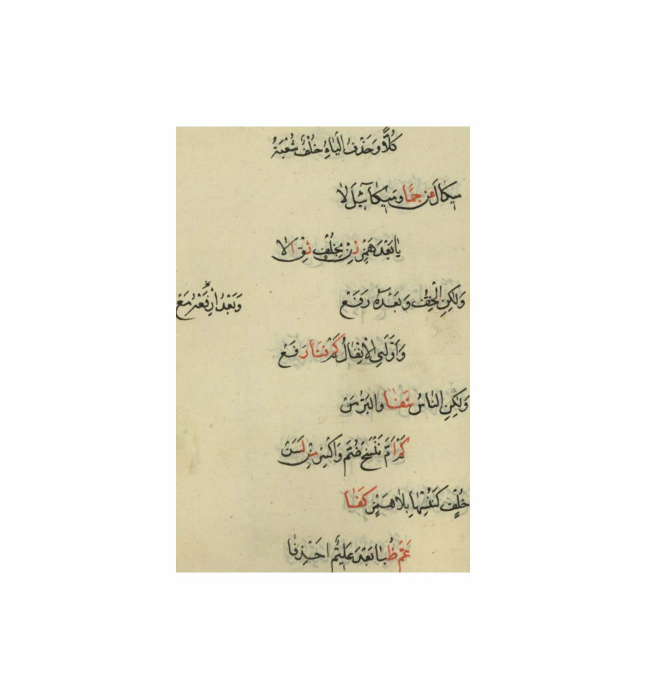 كُلًّا وَحَذْفُ الْيَاءِ خُلْفُ شُعْبَةْ
مِيكَالَ عَنْ حِمًا وَمِيكَائِيلَ لَا
يَا بَعْدَ هَمْزٍ زِنْ بِخُلْفٍ ثِقْ أَلَا
وَلَكِنِ الْخِفُّ وَبَعْدَهُ رَفَعْ
وَبَعْدُ ارْفَعْهُ مَعْ
وَأَوَّلَيِ الْأَنْفَالُ كَمْ فَتًا رَفَعْ
وَلَكِنِ النَّاسُ شَفَا وَالْبِرُّ مَنْ
كَمْ أَمَّ نَنْسَخْ ضُمَّ وَاكْسِرْ مَنْ لَسَنْ
خُلْفٍ كَنُنْسِهَا بِلَا هَمْزٍ كَفَا
عَمَّ ظُبًا بَعْدَ عَلِيمٌ احْذِفَا